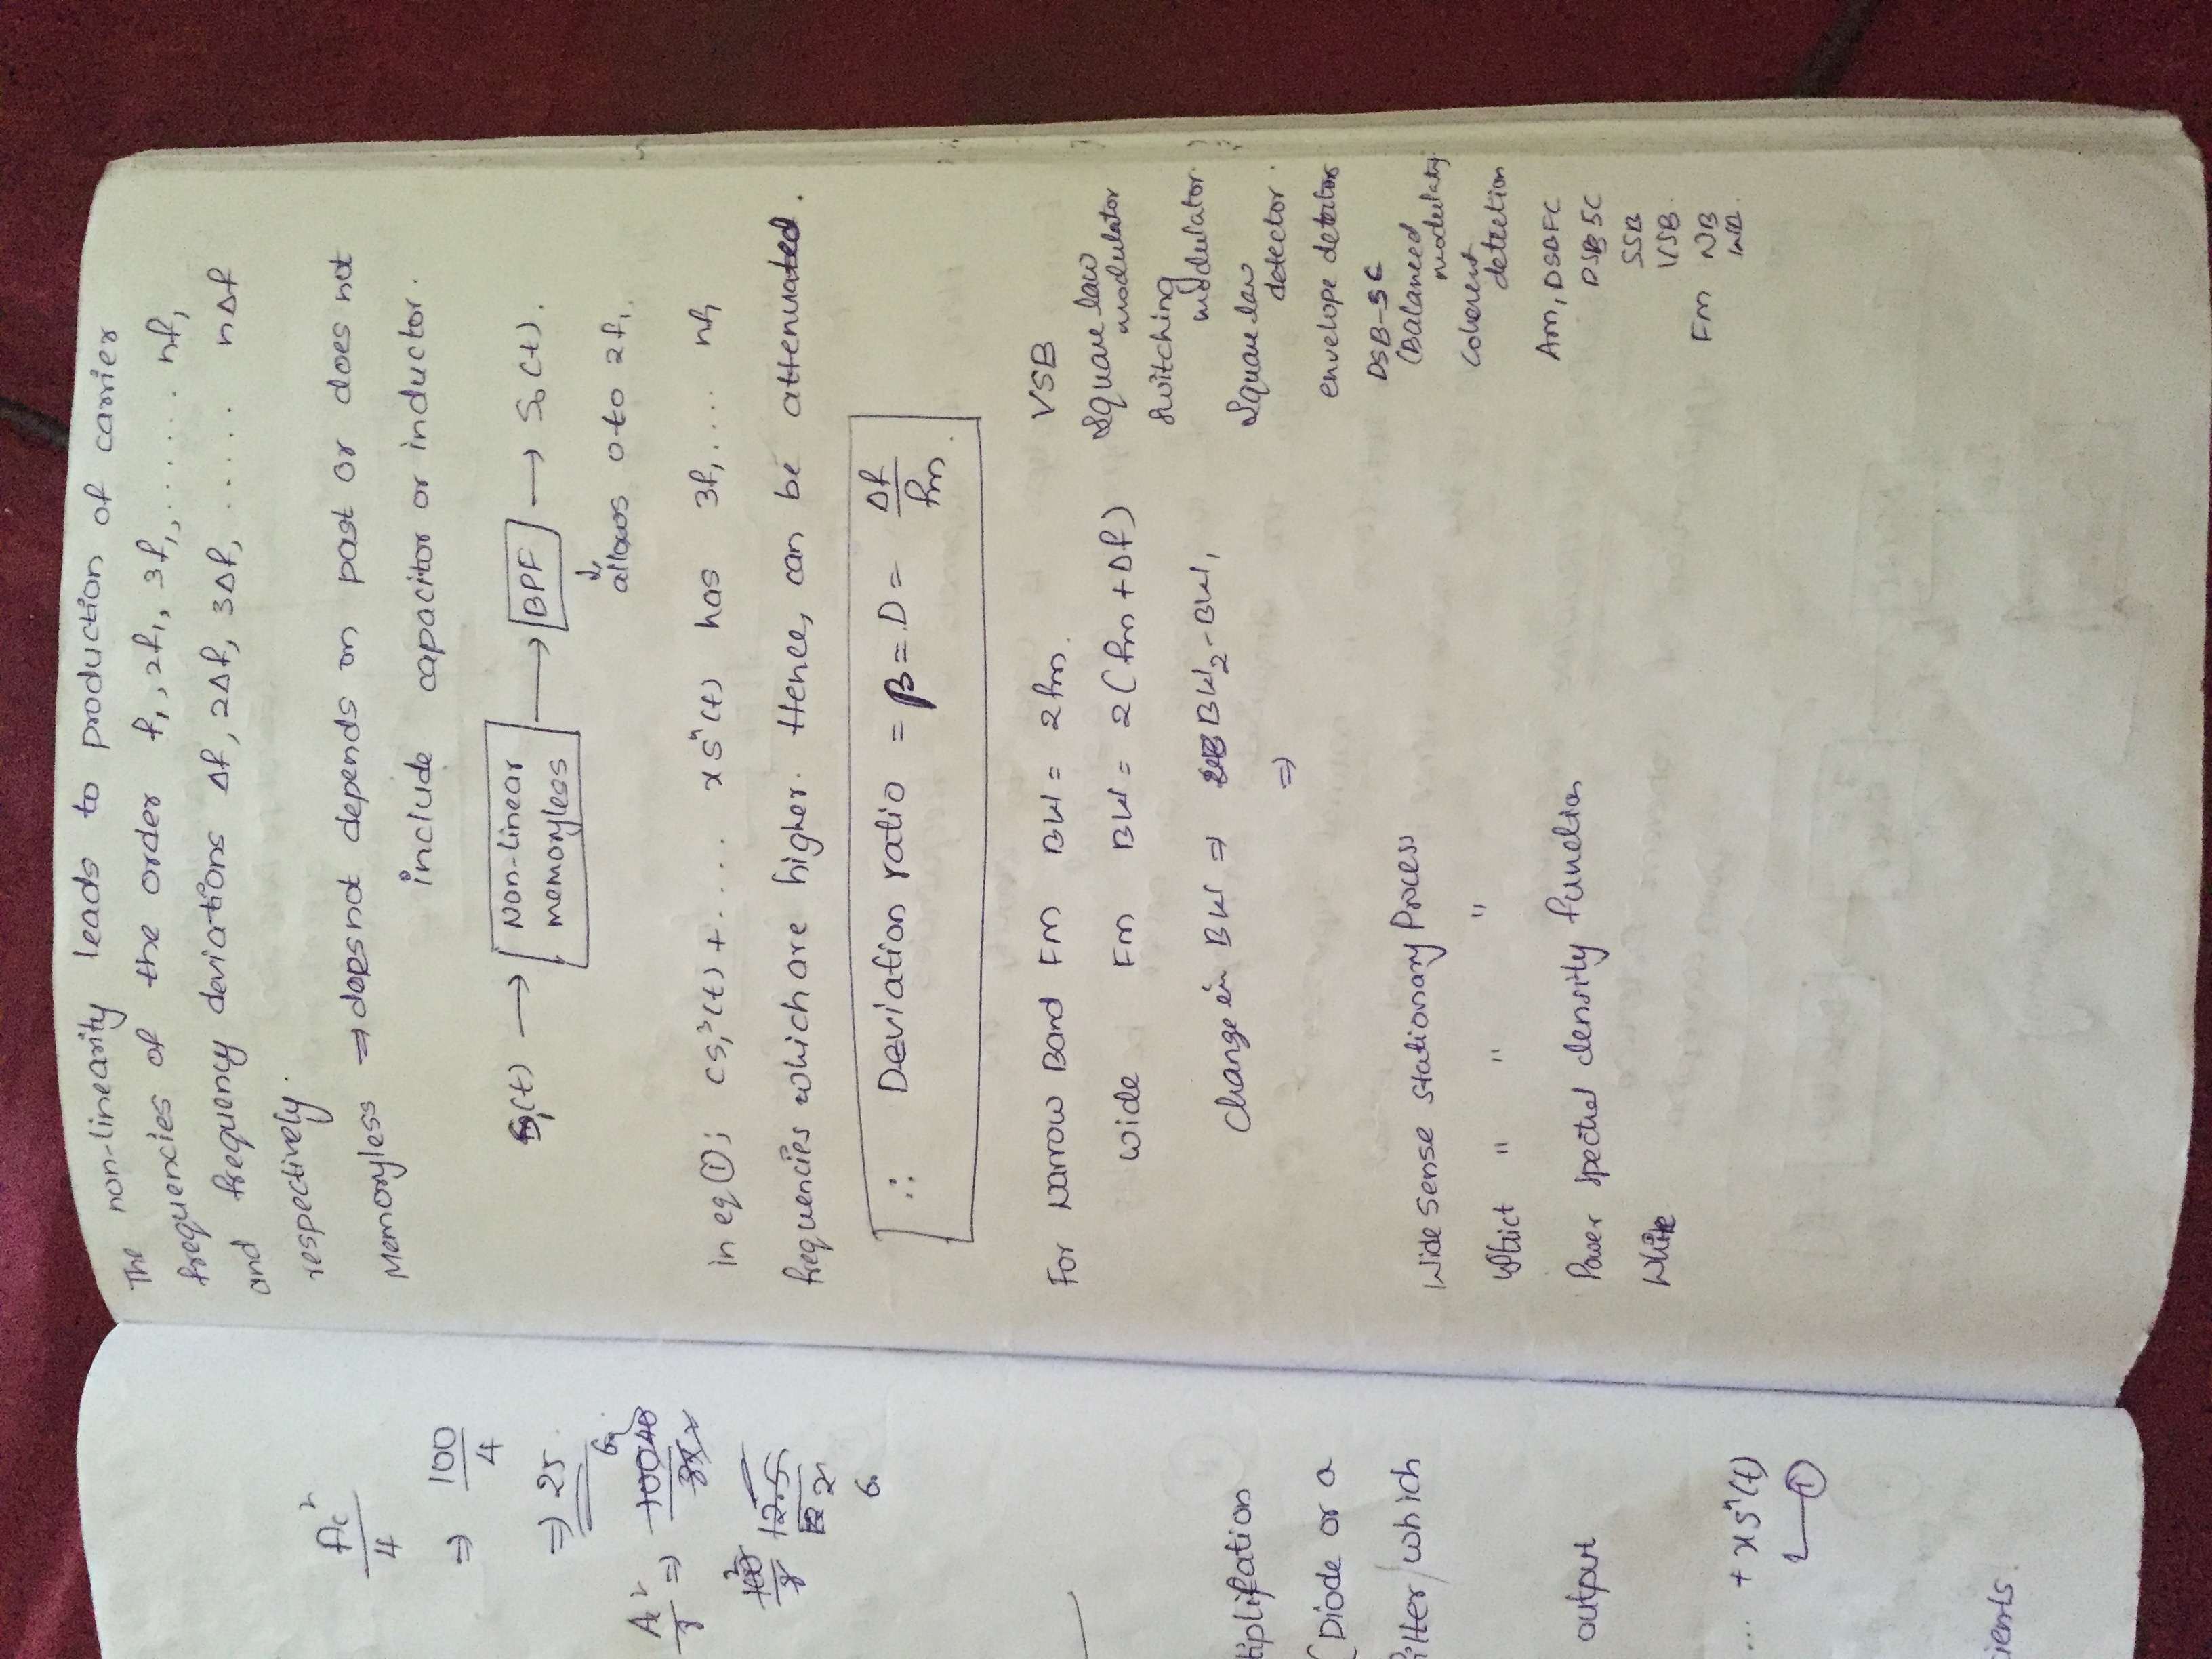 Ac²
4
⇒ 100
4
⇒ 25
Ac² ⇒
8
6.
tiplification
(Diode or a
filter which
output
... + xsⁿ(t)
①
cients.
The non-linearity leads to production of carrier
frequencies of the order f₁, 2f₁, 3f₁, ...... nf₁
and frequency deviations Δf, 2Δf, 3Δf, ..... nΔf
respectively.
Memoryless ⇒ does not depends on past or does not
include capacitor or inductor.
S₁(t) → Non-linear memoryless → BPF → S₀(t).
↓
allows 0 to 2f₁.
in eq ①; cs₁³(t) + .... xsⁿ(t) has 3f₁ .... nf₁
frequencies which are higher. Hence, can be attenuated.
∴ Deviation ratio = β = D = Δf
fm
For Narrow Band FM BW = 2fm.
Wide FM BW = 2(fm + Δf)
Change in BW ⇒ BW₂ - BW₁
⇒
Wide Sense Stationary Process
Strict " " "
Power spectral density function
White
VSB
Square law
modulator
Switching
modulator.
Square law
detector.
envelope detector
DSB-SC
(Balanced
modulator)
Coherent
detection
Am, DSBFC
DSB SC
SSB
VSB.
FM NB
WB.